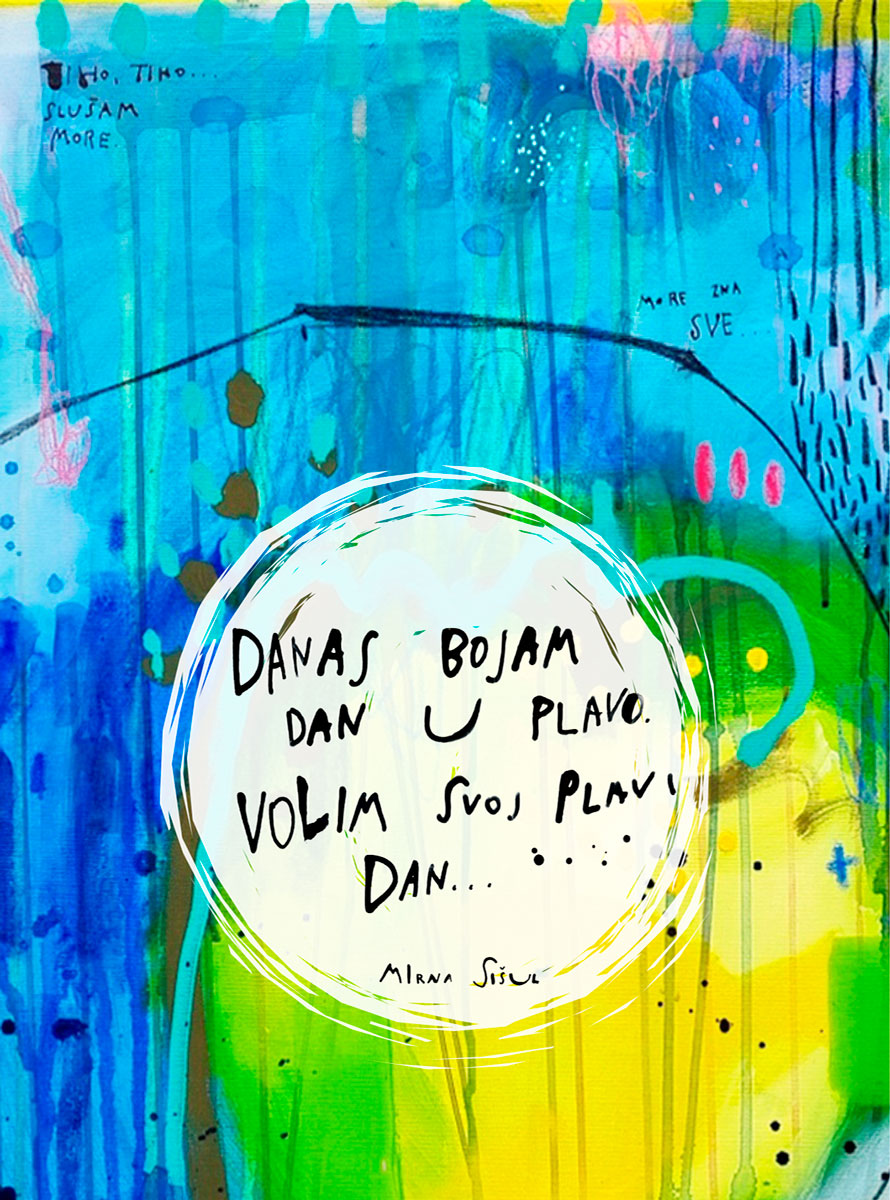 TIHO, TIHO...
SLUŠAM
MORE.
MORE ZNA
SVE...
DANAS BOJAM
DAN U PLAVO.
VOLIM SVOJ PLAVI
DAN...
MIRNA SIŠUL